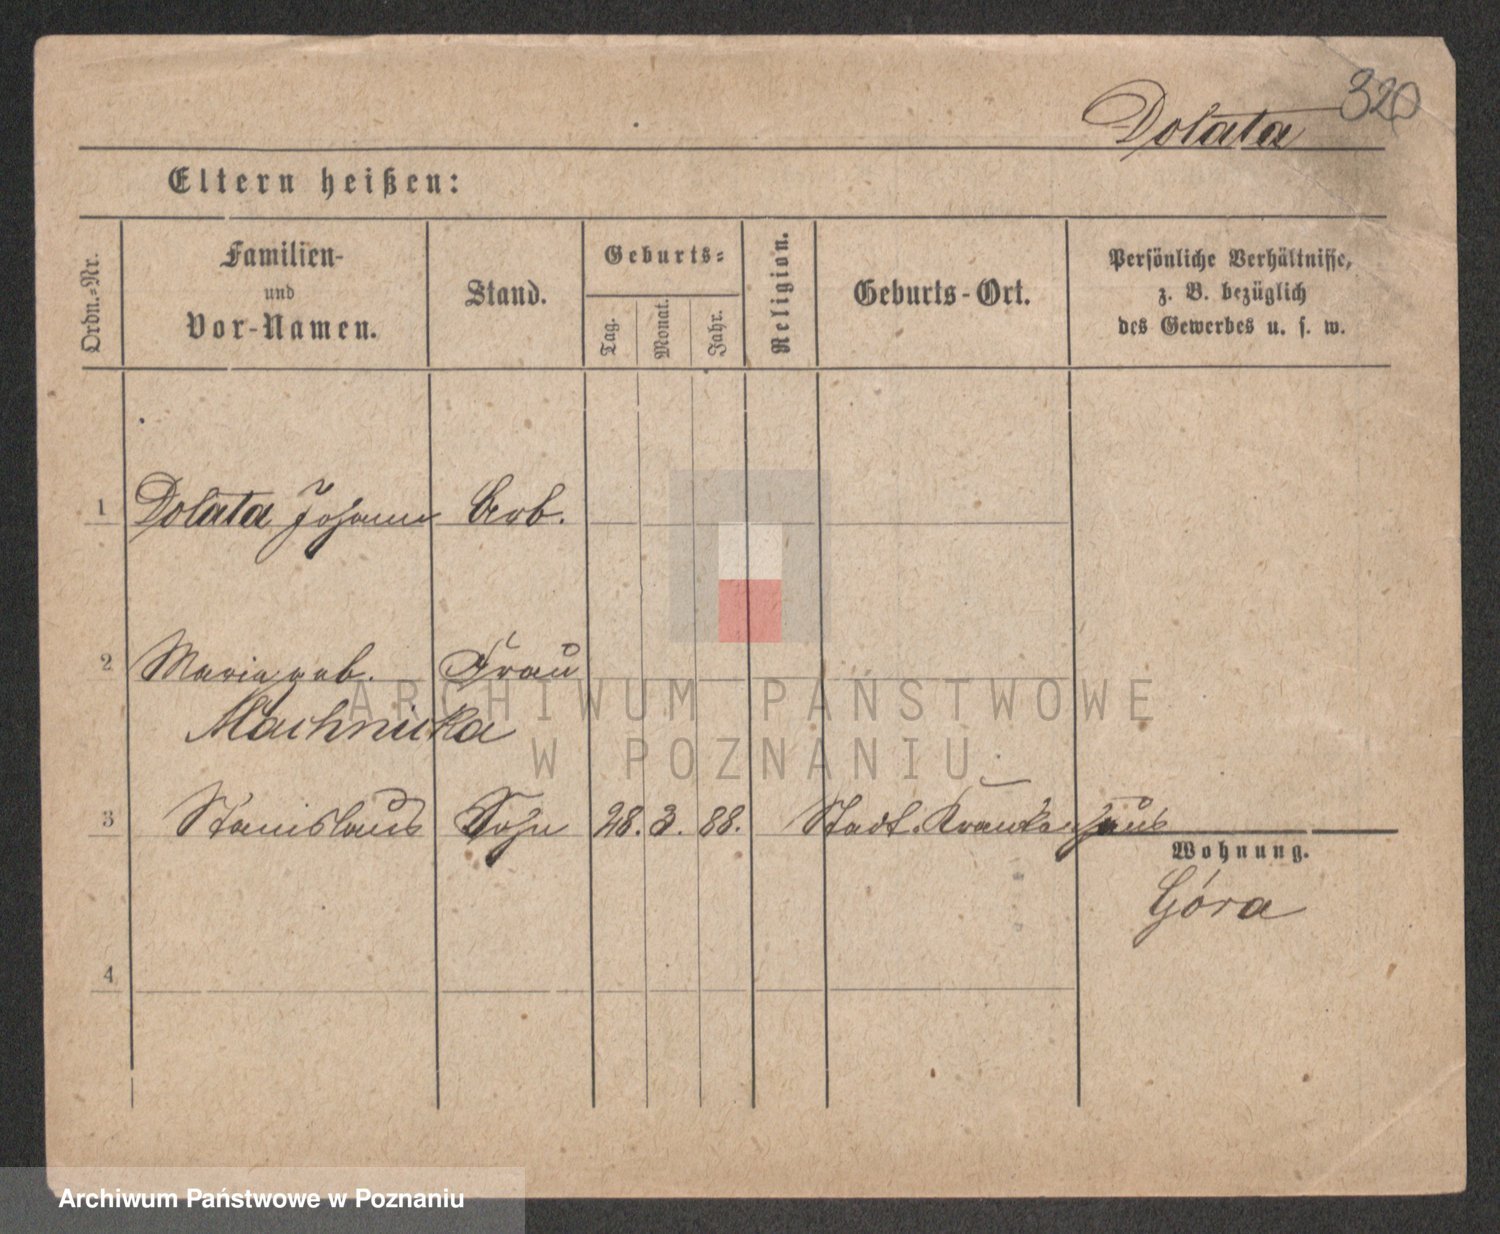 320
Dolata
Eltern heißen:
Ordn.-Nr.
Familien-
und
Vor-Namen.
Stand.
Geburts-
Tag.
Monat.
Jahr.
Religion.
Geburts-Ort.
Persönliche Verhältnisse,
z. B. bezüglich
des Gewerbes u. s. w.
1 Dolata Johann Arb.
2 Maria geb. Frau
Machnicka
3 Stanislaus Sohn 28. 3. 88. Stadt. Krankenhaus
Wohnung.
Góra
4
ARCHIWUM PAŃSTWOWE
W POZNANIU
Archiwum Państwowe w Poznaniu